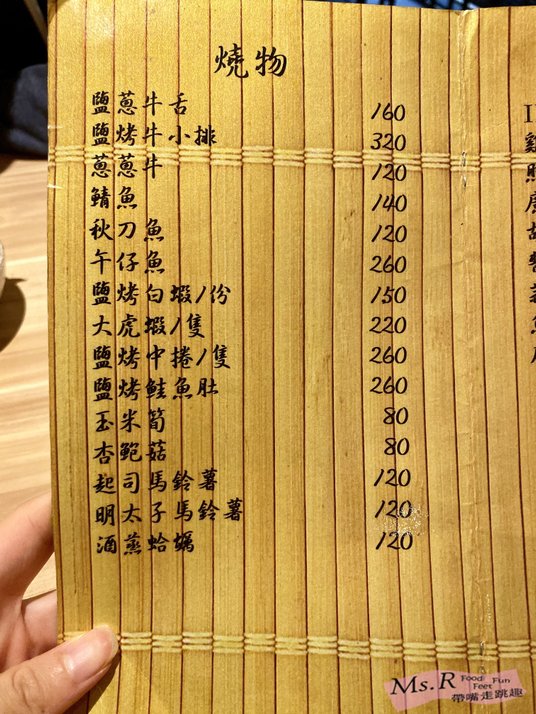 燒物
鹽蔥牛舌 160
鹽烤牛小排 320
蔥蔥牛 120
鯖魚 140
秋刀魚 120
午仔魚 260
鹽烤白蝦/份 150
大虎蝦/隻 220
鹽烤中捲/隻 260
鹽烤鮭魚肚 260
玉米筍 80
杏鮑菇 80
起司馬鈴薯 120
明太子馬鈴薯 120
酒蒸蛤蠣 120
Ms.R Food Fun Feet
帶嘴走跳趣